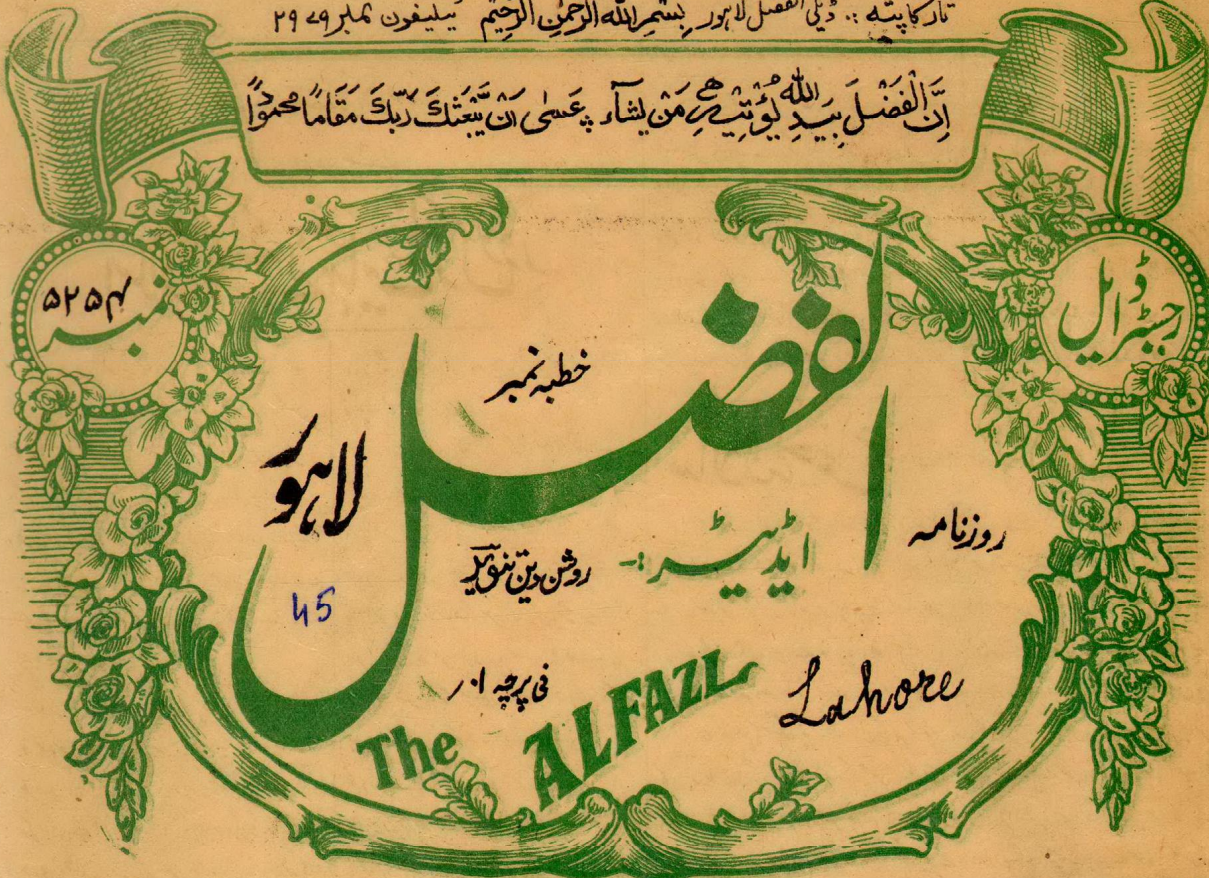 تار کا پتہ :: ڈیلی الفضل لاہور بِسْمِ اللّٰهِ الرَّحْمٰنِ الرَّحِيْمِ ٹیلیفون نمبر ۲۹۷۹
اِنَّ الْفَضْلَ بِيَدِ اللّٰهِ يُؤْتِيْهِ مَنْ يَّشَآءُ عَسٰى اَنْ يَّبْعَثَكَ رَبُّكَ مَقَامًا مَّحْمُوْدًا
رجسٹرڈ ایل
نمبر ۵۲۵۴
الفضل
خطبہ نمبر
لاہور
روزنامہ
ایڈیٹر:-
روشن دین تنویر
45
فی پرچہ ۱ ر
The ALFAZL
Lahore